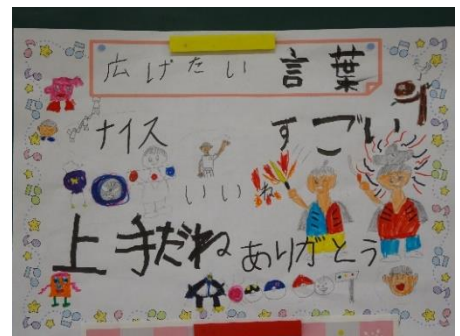 広げたい言葉
ナイス すごい
いいね
上手だね ありがとう